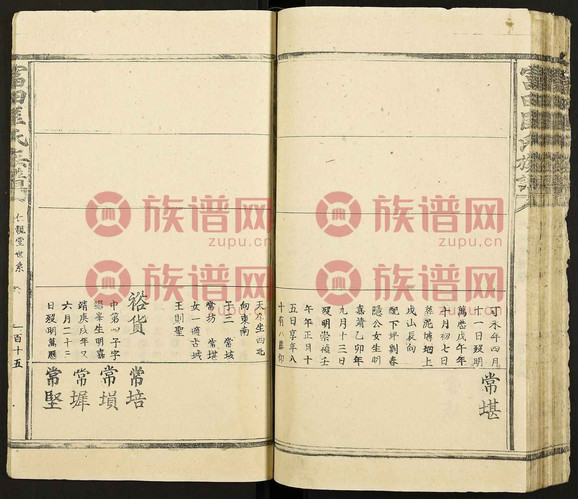 富田匡氏族譜
丁未年四月
十一日歿明
萬歷戊午年
十月初七日
葬泥塘坳上
戌山辰向
配下坪劉春
隱公女生明
嘉靖乙卯年
九月十三日
歿明崇禎壬
午年正月十
五日享年八
常堪
天亥生西北
向東南
子三 常坡
常坊 常堪
女一適古城
王則聖
裕貨
中第四子字
生明嘉
靖庚戌年又
六月二十二
日歿明萬歷
常培
常塤
常墀
常堅
富田匡氏族譜
仁親堂世系
一百十五
族谱网
zupu.cn
族谱网
zupu.cn
族谱网
zupu.cn
族谱网
zupu.cn